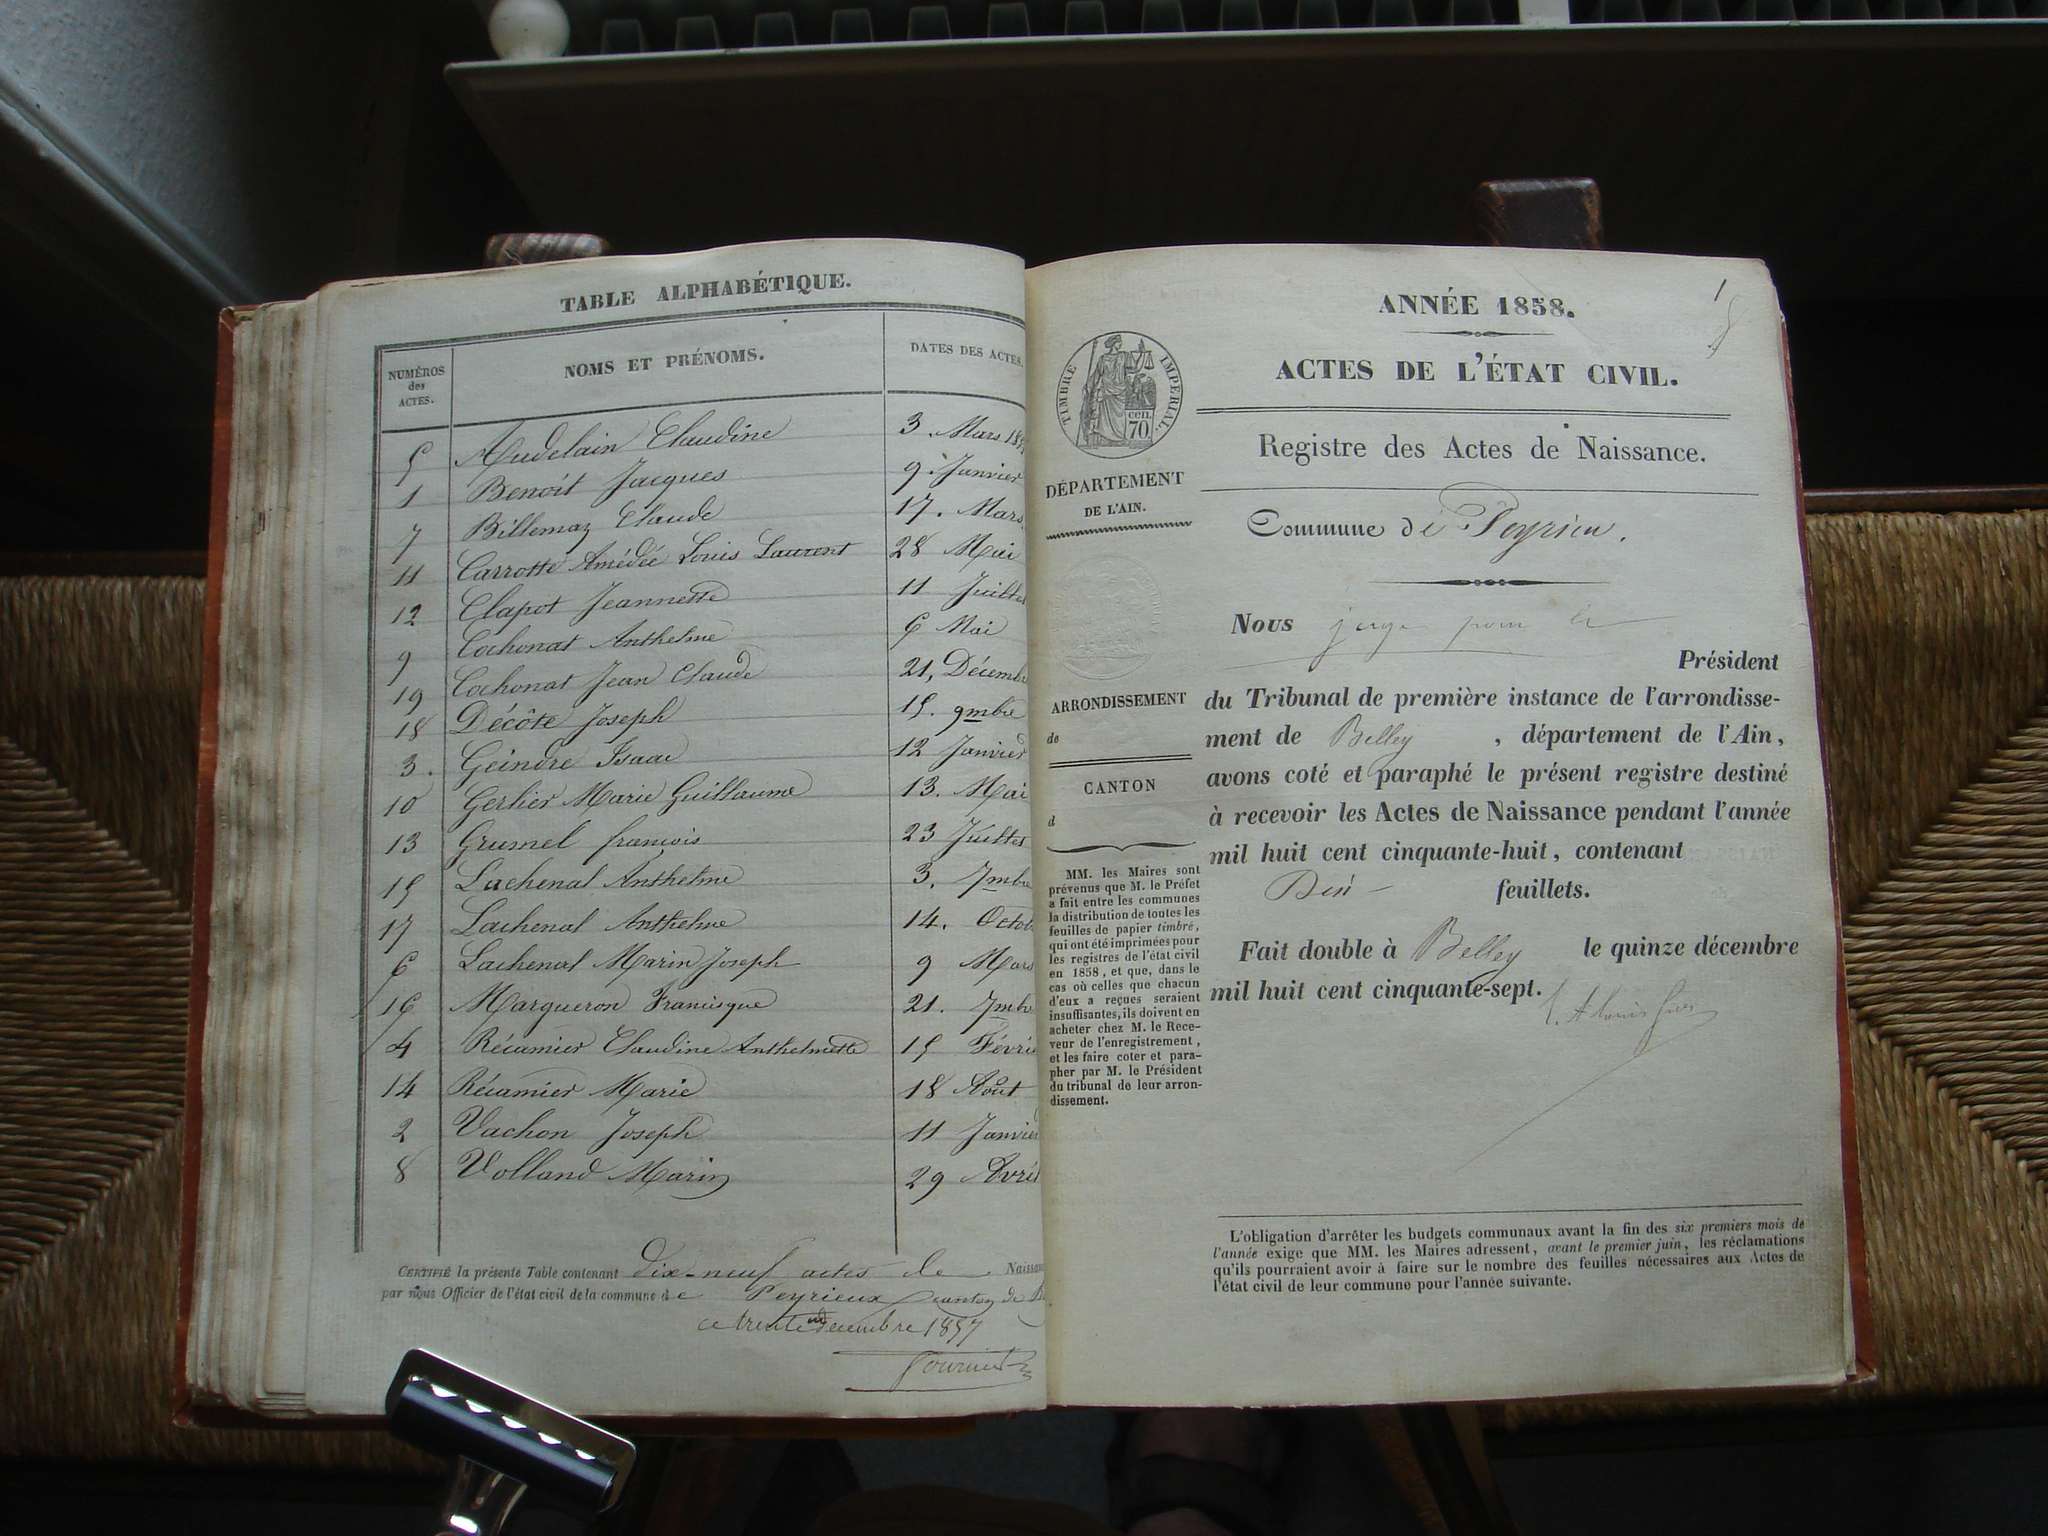 TABLE ALPHABÉTIQUE.
NUMÉROS des ACTES.
NOMS ET PRÉNOMS.
DATES DES ACTES.
5 Audelain Claudine 3 Mars
1 Benoit Jacques 9 Janvier
7 Billemaz Claude 17. Mars
11 Carrotte Amédée Louis Laurent 28 Mai
12 Clapot Jeannette 11 Juillet
9 Cochonat Anthelme 6 Mai
19 Cochonat Jean Claude 21, Décembre
18 Décôte Joseph 15. 9mbre
3. Geindre Isaac 12 Janvier
10 Gerlier Marie Guillaume 13. Mai
13 Grumel francois 23 Juillet
15 Lachenal Anthelme 3. 7mbre
17 Lachenal Anthelme 14. Octob
6 Lachenal Marin Joseph 9 Mars
16 Margueron Francisque 21. 7mbr
4 Récamier Claudine Anthelmette 15 Févri
14 Récamier Marie 18 Août
2 Vachon Joseph 11 Janvier
8 Volland Marin 29 Avril
CERTIFIÉ la présente Table contenant dix-neuf actes de Naissan
par nous Officier de l'état civil de la commune de Peyrieux canton de B
ce trente un decembre 1857
1
ANNÉE 1858.
ACTES DE L'ÉTAT CIVIL.
Registre des Actes de Naissance.
TIMBRE IMPÉRIAL.
cen.
70
DÉPARTEMENT
DE L'AIN.
Commune de Peyrieu.
Nous juge pour le
Président
du Tribunal de première instance de l'arrondisse-
ment de Belley, département de l'Ain,
avons coté et paraphé le présent registre destiné
à recevoir les Actes de Naissance pendant l'année
mil huit cent cinquante-huit, contenant
feuillets.
Fait double à Belley le quinze décembre
mil huit cent cinquante-sept.
ARRONDISSEMENT
de
CANTON
d
MM. les Maires sont
prévenus que M. le Préfet
a fait entre les communes
la distribution de toutes les
feuilles de papier timbré,
qui ont été imprimées pour
les registres de l'état civil
en 1858, et que, dans le
cas où celles que chacun
d'eux a reçues seraient
insuffisantes, ils doivent en
acheter chez M. le Rece-
veur de l'enregistrement,
et les faire coter et para-
pher par M. le Président
du tribunal de leur arron-
dissement.
L'obligation d'arrêter les budgets communaux avant la fin des six premiers mois de
l'année exige que MM. les Maires adressent, avant le premier juin, les réclamations
qu'ils pourraient avoir à faire sur le nombre des feuilles nécessaires aux Actes de
l'état civil de leur commune pour l'année suivante.